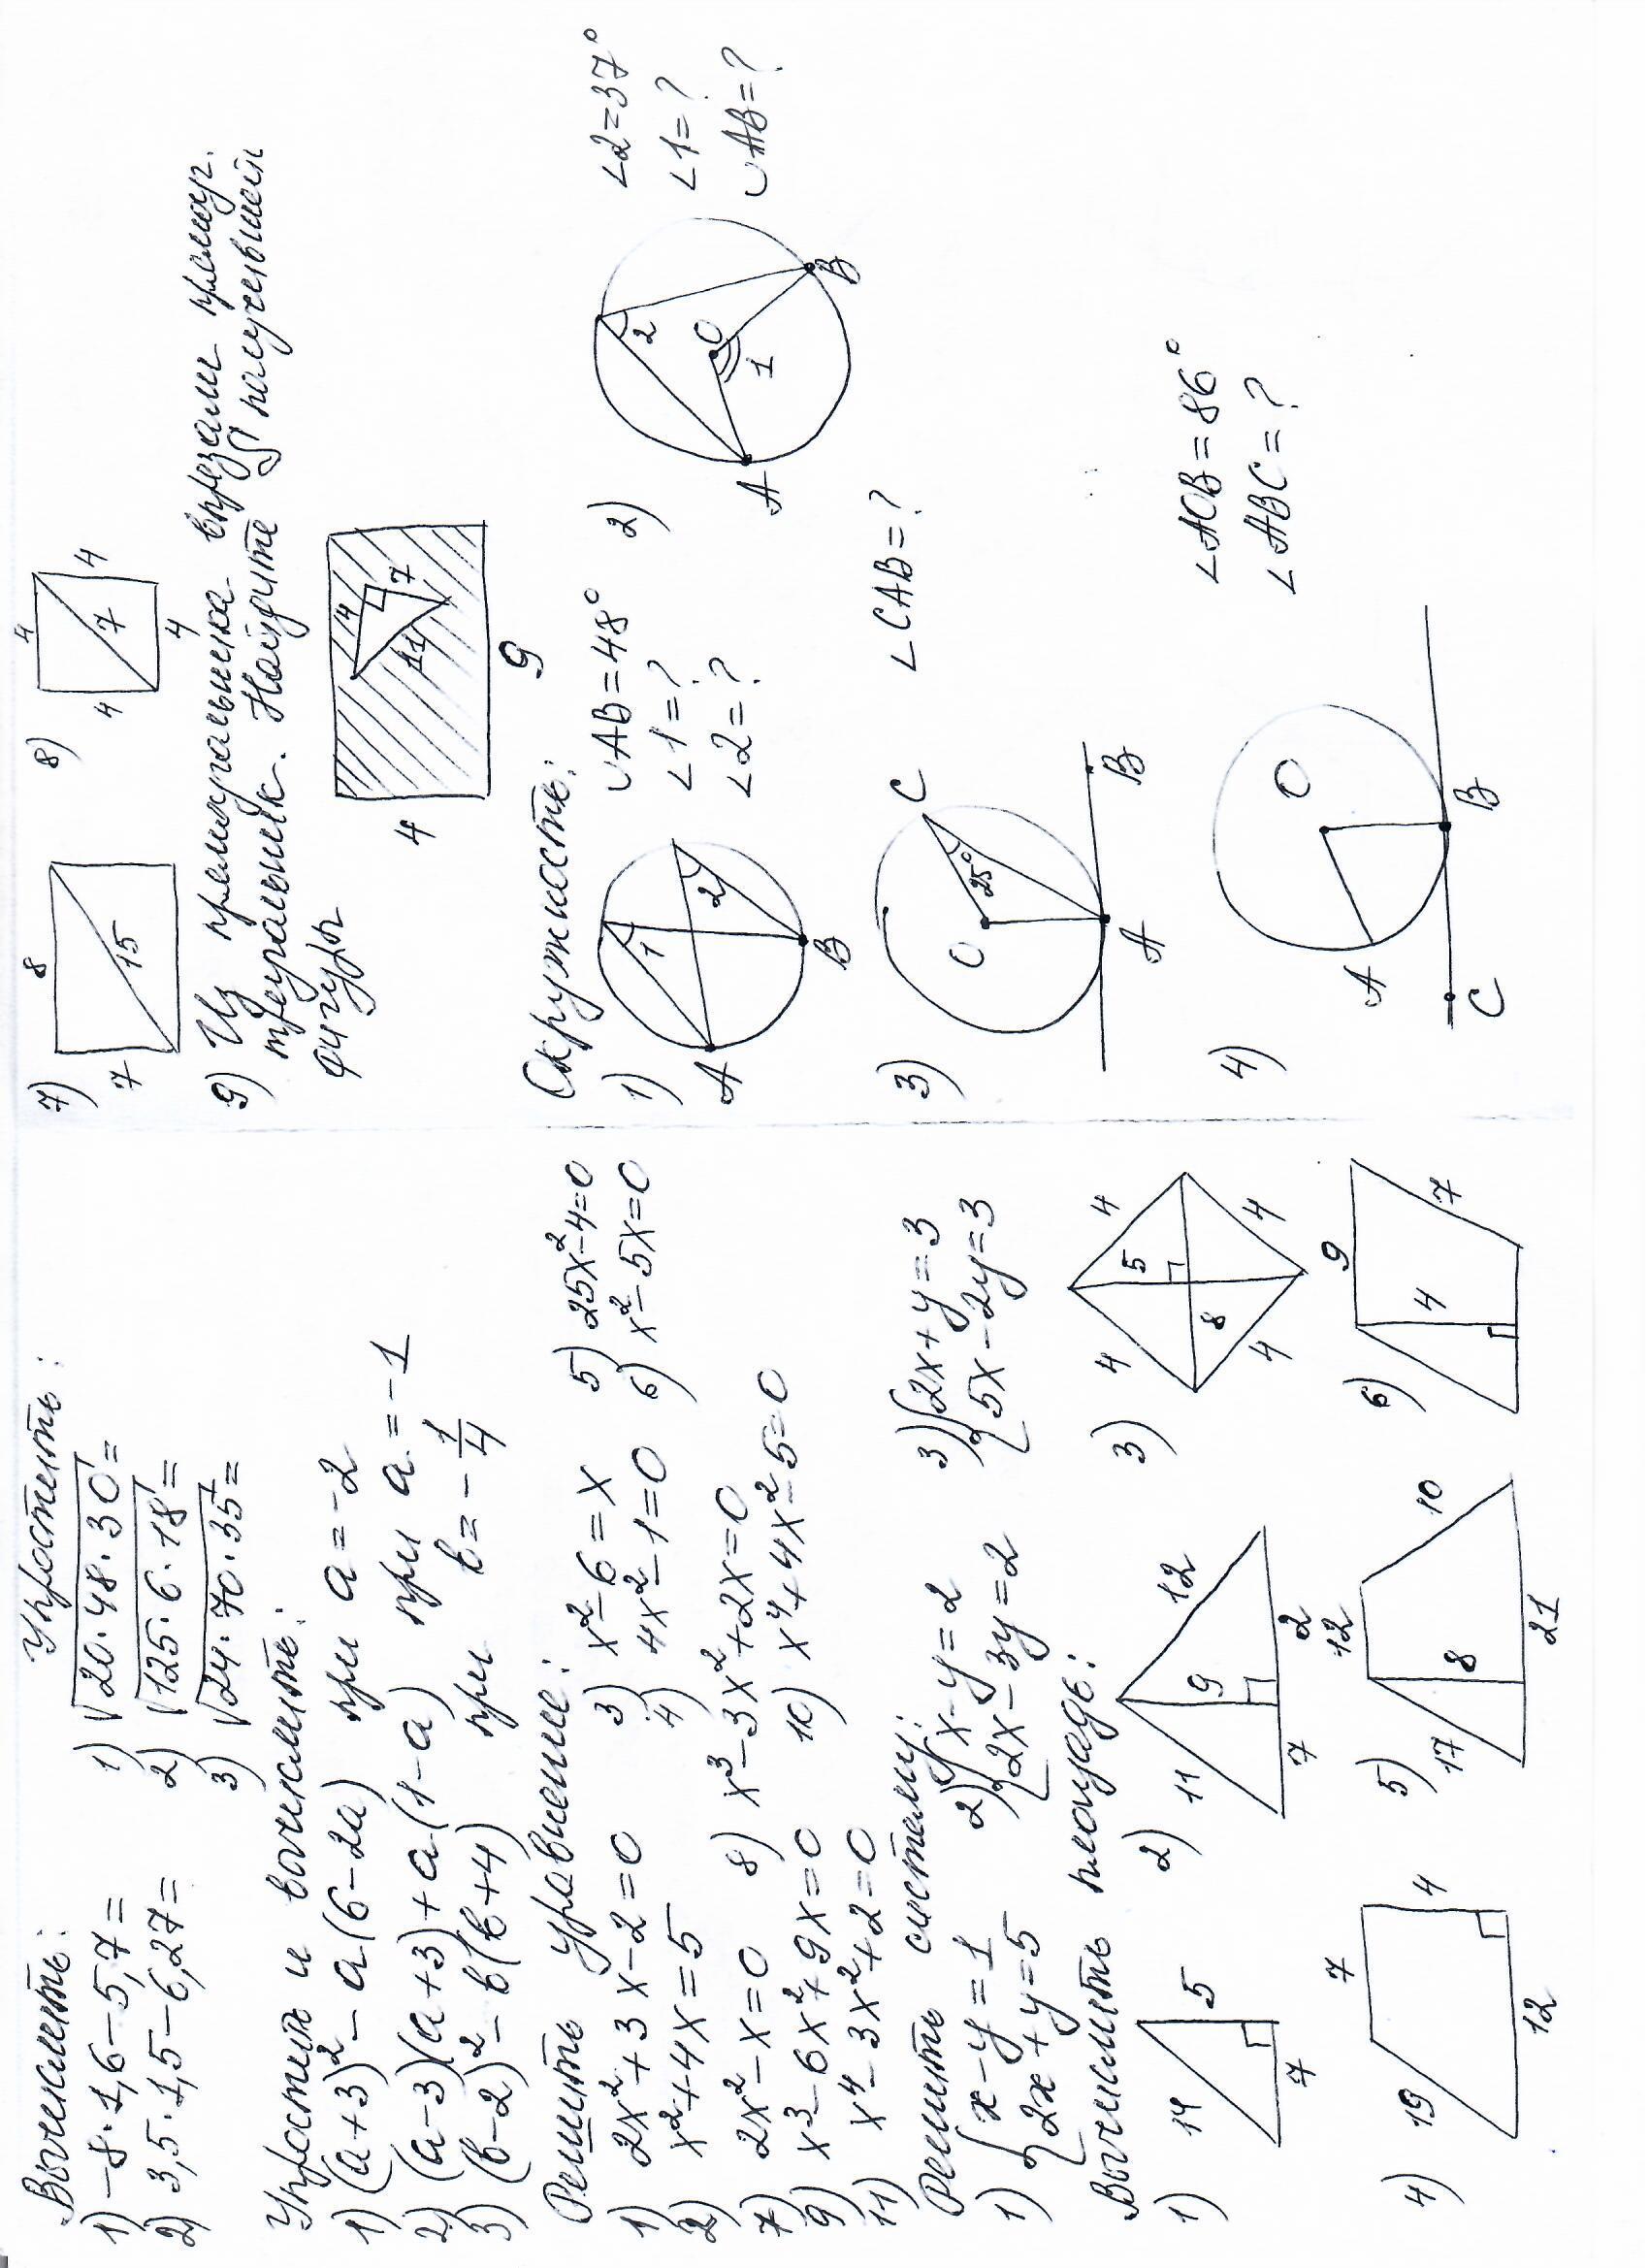 Вычислить:
1) -8·1,6-5,7=
2) 3,5·1,5-6,27=
Упростить:
1) √20·48·30=
2) √125·6·18=
3) √24·70·35=
Упростить и вычислить:
1) (a+3)²-a(6-2a) при a=-2
2) (a-3)(a+3)+a(1-a) при a=-1
3) (b-2)²-b(b+4) при b=-1/4
Решить уравнение:
1) 2x²+3x-2=0
2) x²+4x=5
3) x²-6=x
4) 4x²-1=0
5) 25x²-4=0
6) x²-5x=0
7) 2x²-x=0
8) x³-3x²+2x=0
9) x³-6x²+9x=0
10) x⁴+4x²-5=0
11) x⁴-3x²+2=0
Решить систему:
1) {x-y=1
2x+y=5
2) {x-y=2
2x-3y=2
3) {2x+y=3
5x-2y=3
Вычислить площадь:
1) 14 5 7
2) 11 9 12 7 2
3) 4 4 5 8 4 4
4) 7 19 4 12
5) 12 17 8 10 21
6) 9 4 7
7) 8 7 15
8) 4 4 7 4 4
9) Из прямоугольника вырезали прямоуг.
треугольник. Найдите S получившейся
фигуры
14 7 11
4 9
Окружность:
1) 1 2 A B
◡AB=48°
∠1=?
∠2=?
2) 2 O 1 A B
∠2=37°
∠1=?
◡AB=?
3) O 25° C A B
∠CAB=?
4) O A B C
∠AOB=86°
∠ABC=?